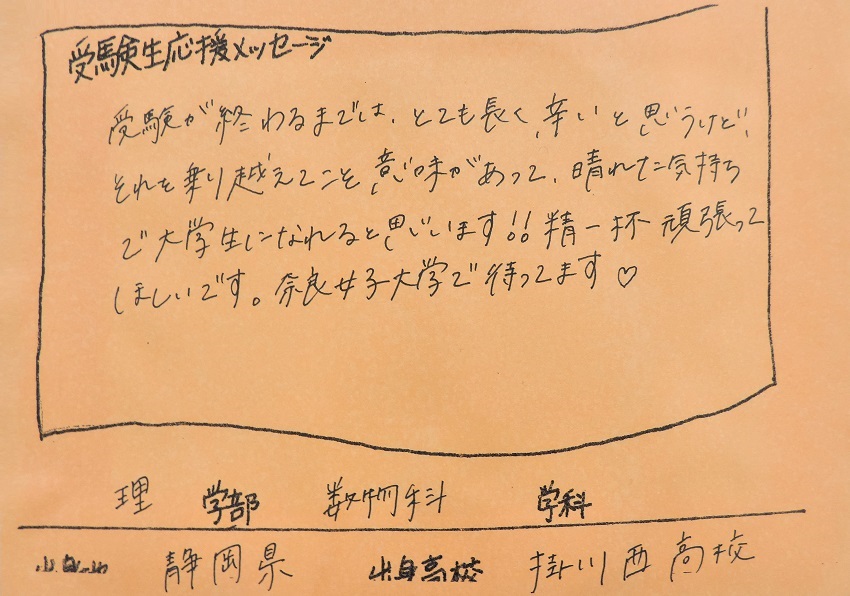 受験生応援メッセージ
受験が終わるまでは、とても長く、辛いと思うけど、
それを乗り越えてこそ意味があって、晴れた気持ち
で大学生になれると思います!!精一杯頑張って
ほしいです。奈良女子大学で待ってます♡
理 学部 数物科 学科
静岡県 出身高校 掛川西高校